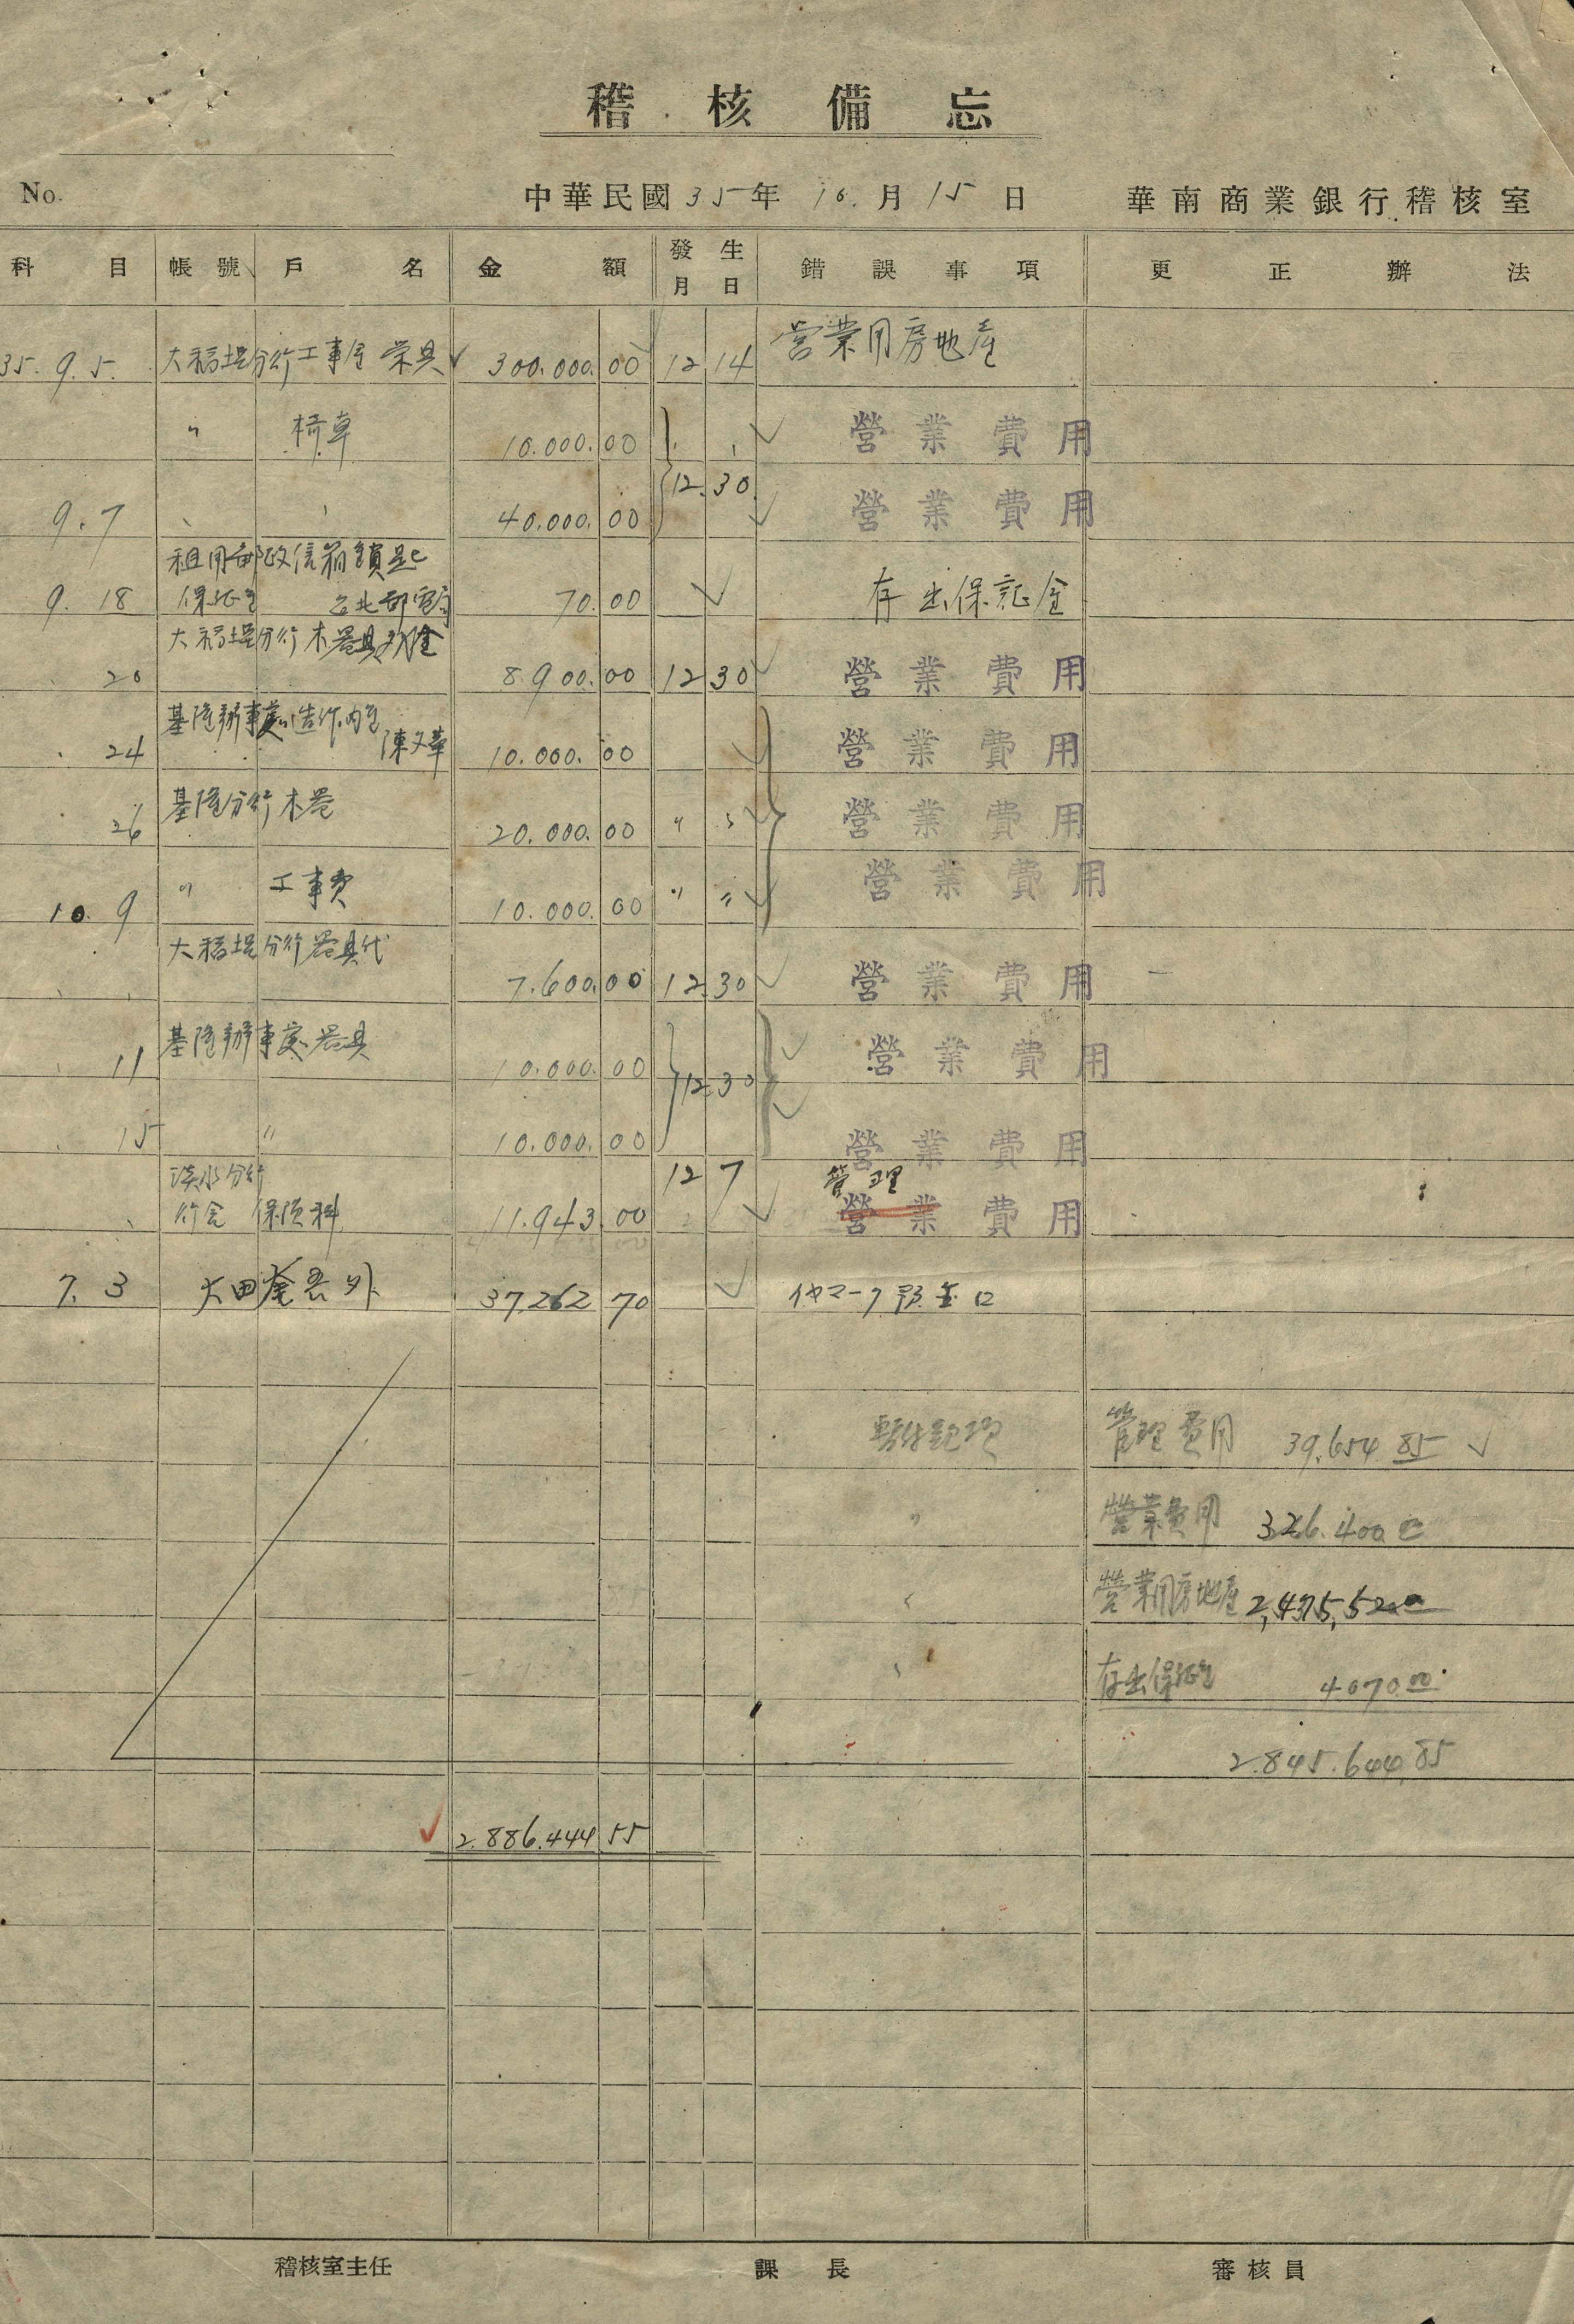 稽核備忘
No. 中華民國35年10.月15日 華南商業銀行稽核室
科目 帳號 戶名 金額 發生月日 錯誤事項 更正辦法
35.9.5. 大稻埕分行工事 300.000.00 12 14 營業用房地產
〃 椅卓 10.000.00 營業費用
12.30
9.7 40.000.00 營業費用
租用郵政信箱鎖匙
9.18 保証金 台北郵電局 70.00 存出保証金
大稻埕分行木器具
20 8900.00 12 30 營業費用
基隆辦事處
24 陳文華 10.000.00 營業費用
26 基隆分行木器 20.000.00 〃 〃 營業費用
10.9 〃 工事費 10.000.00 〃 〃 營業費用
大稻埕分行器具代
7.600.00 12.30 營業費用
11 基隆辦事處器具 10.000.00 12.30 營業費用
15 〃 10.000.00 營業費用
淡水分行 12 7 管理
行舍 保險料 11.943.00 營業費用
7.3 大田 外 37.262 70
暫付款項 管理費用 39.654 85
〃 營業費用 326.400
〃 營業用房地產 2,475,520
〃 存出保証金 4070.00
2.845.644.85
2.886.444 55
稽核室主任 課長 審核員